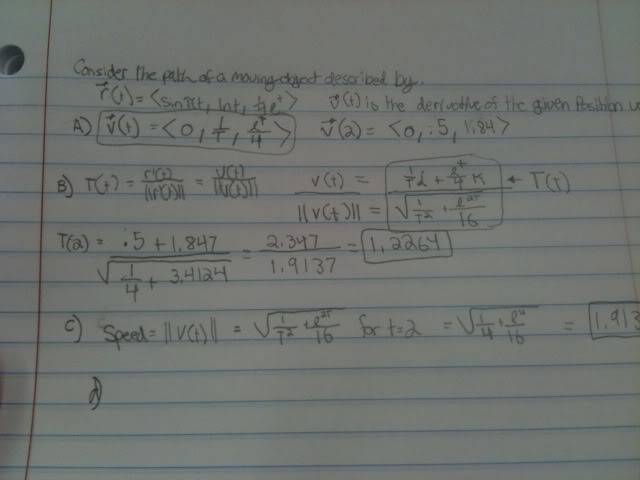 Consider the path of a moving object described by.
r⃗(t) = <sin πt, lnt, ¼e^t> v⃗(t) is the derivative of the given position
A) v⃗(t) = <0, 1/t, e^t/4> v⃗(2) = <0, .5, 1.84>
B) T(t) = r'(t)/||r'(t)|| = v(t)/||v(t)|| v(t)/||v(t)|| = = (1/t j + e^t/4 k)/√(1/t² + e^2t/16) ← T(t)
T(2) = (.5 + 1.847)/√(1/4 + 3.4124) = 2.347/1.9137 = 1.2264
C) Speed = ||v(t)|| = √(1/t² + e^2t/16) for t=2 = √(1/4 + e^4/16) = 1.913
d)